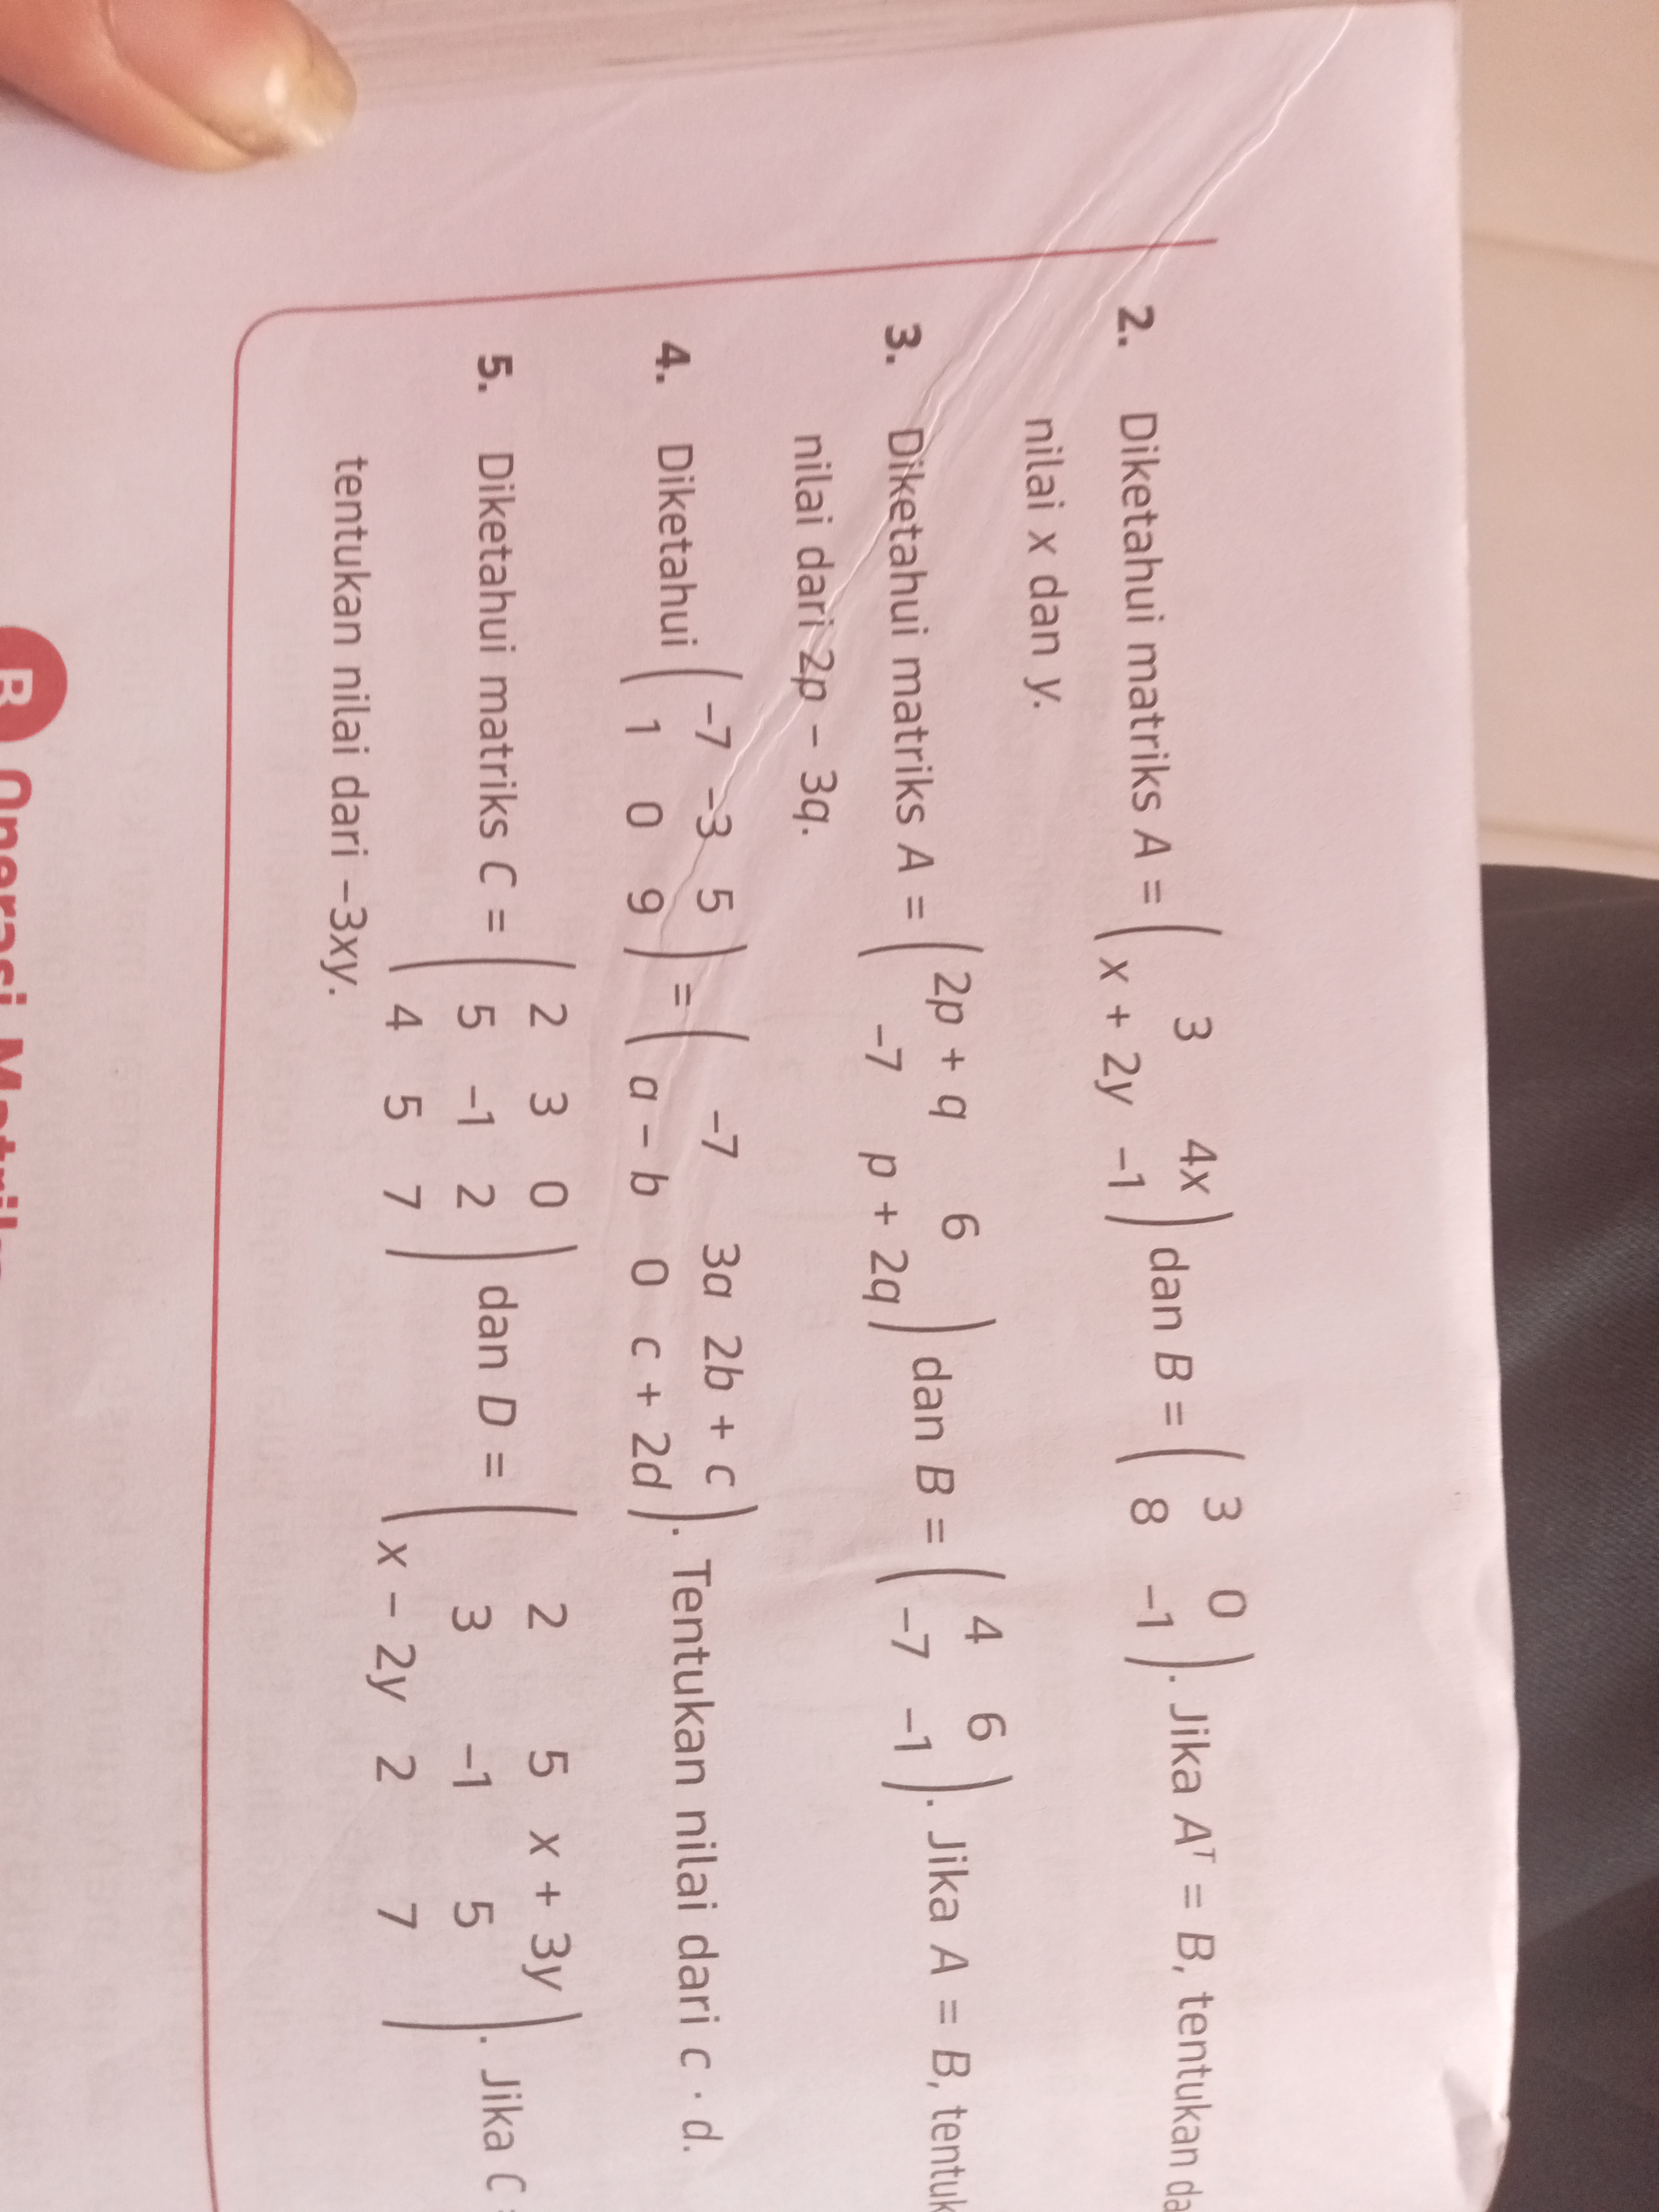 2. Diketahui matriks A = ( 3 4x ; x + 2y –1 ) dan B = ( 3 0 ; 8 –1 ). Jika Aᵀ = B, tentukan
nilai x dan y.
3. Diketahui matriks A = ( 2p + q 6 ; –7 p + 2q ) dan B = ( 4 6 ; –7 –1 ). Jika A = B,
nilai dari 2p – 3q.
4. Diketahui ( –7 –3 5 ; 1 0 9 ) = ( –7 3a 2b + c ; a – b 0 c + 2d ). Tentukan nilai dari c · d.
5. Diketahui matriks C = ( 2 3 0 ; 5 –1 2 ; 4 5 7 ) dan D = ( 2 5 x + 3y ; 3 –1 5 ; x – 2y 2 7 ). Jika C
tentukan nilai dari –3xy.
B Operasi Matriks